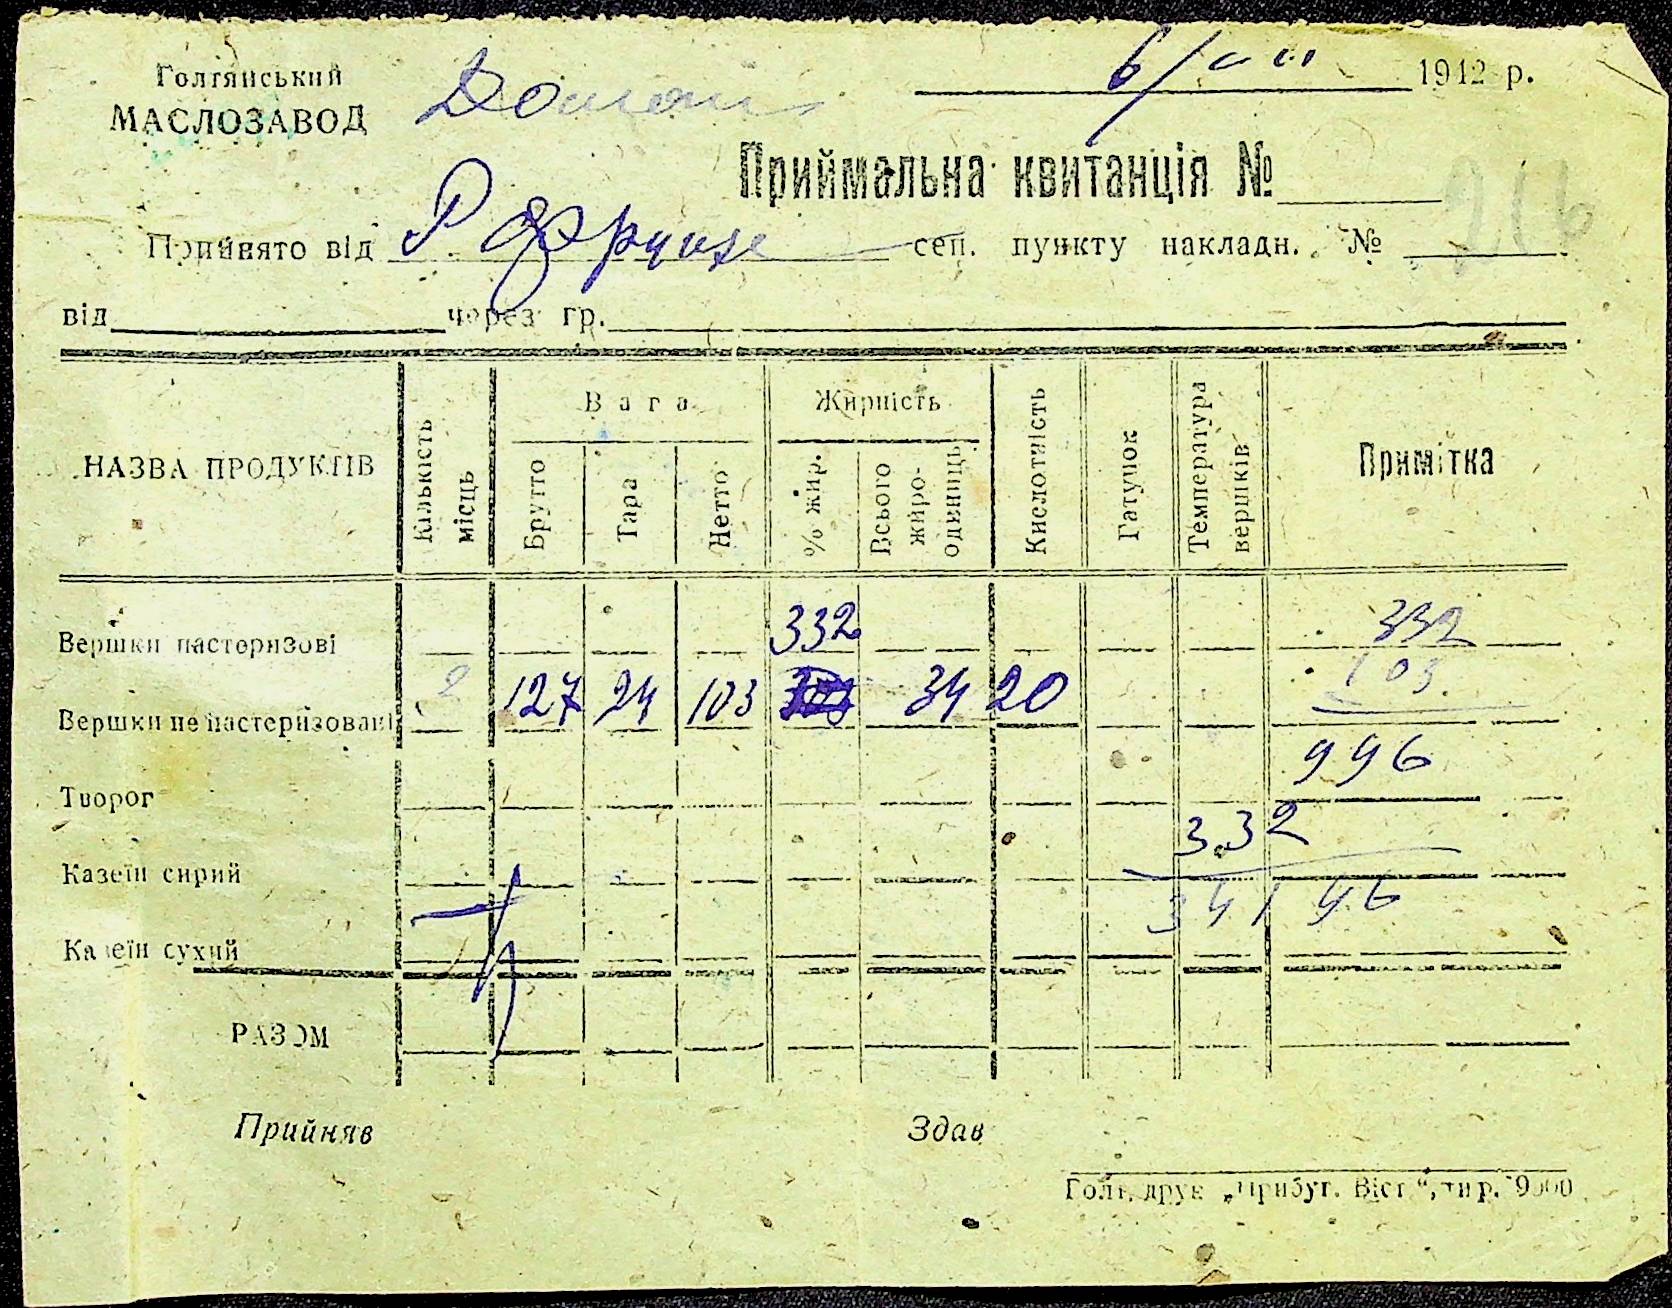 Голтянський
МАСЛОЗАВОД
6/VIII 1942 р.
Приймальна квитанція №
216
Прийнято від сеп. пункту накладн. №
від через гр.
НАЗВА ПРОДУКТІВ
Кількість місць
Вага
Брутто
Тара
Нетто
Жирність
% жир.
Всього жиро-одиниць
Кислотність
Гатунок
Температура вершків
Примітка
Вершки пастеризові 332 332
Вершки не пастеризовані 2 127 24 103 34 20 103
996
Творог
3.32
Казеїн сирий
341 96
Казеїн сухий
РАЗОМ
Прийняв Здав
Голт. друк „Прибуг. Віст.“, тир. 9000